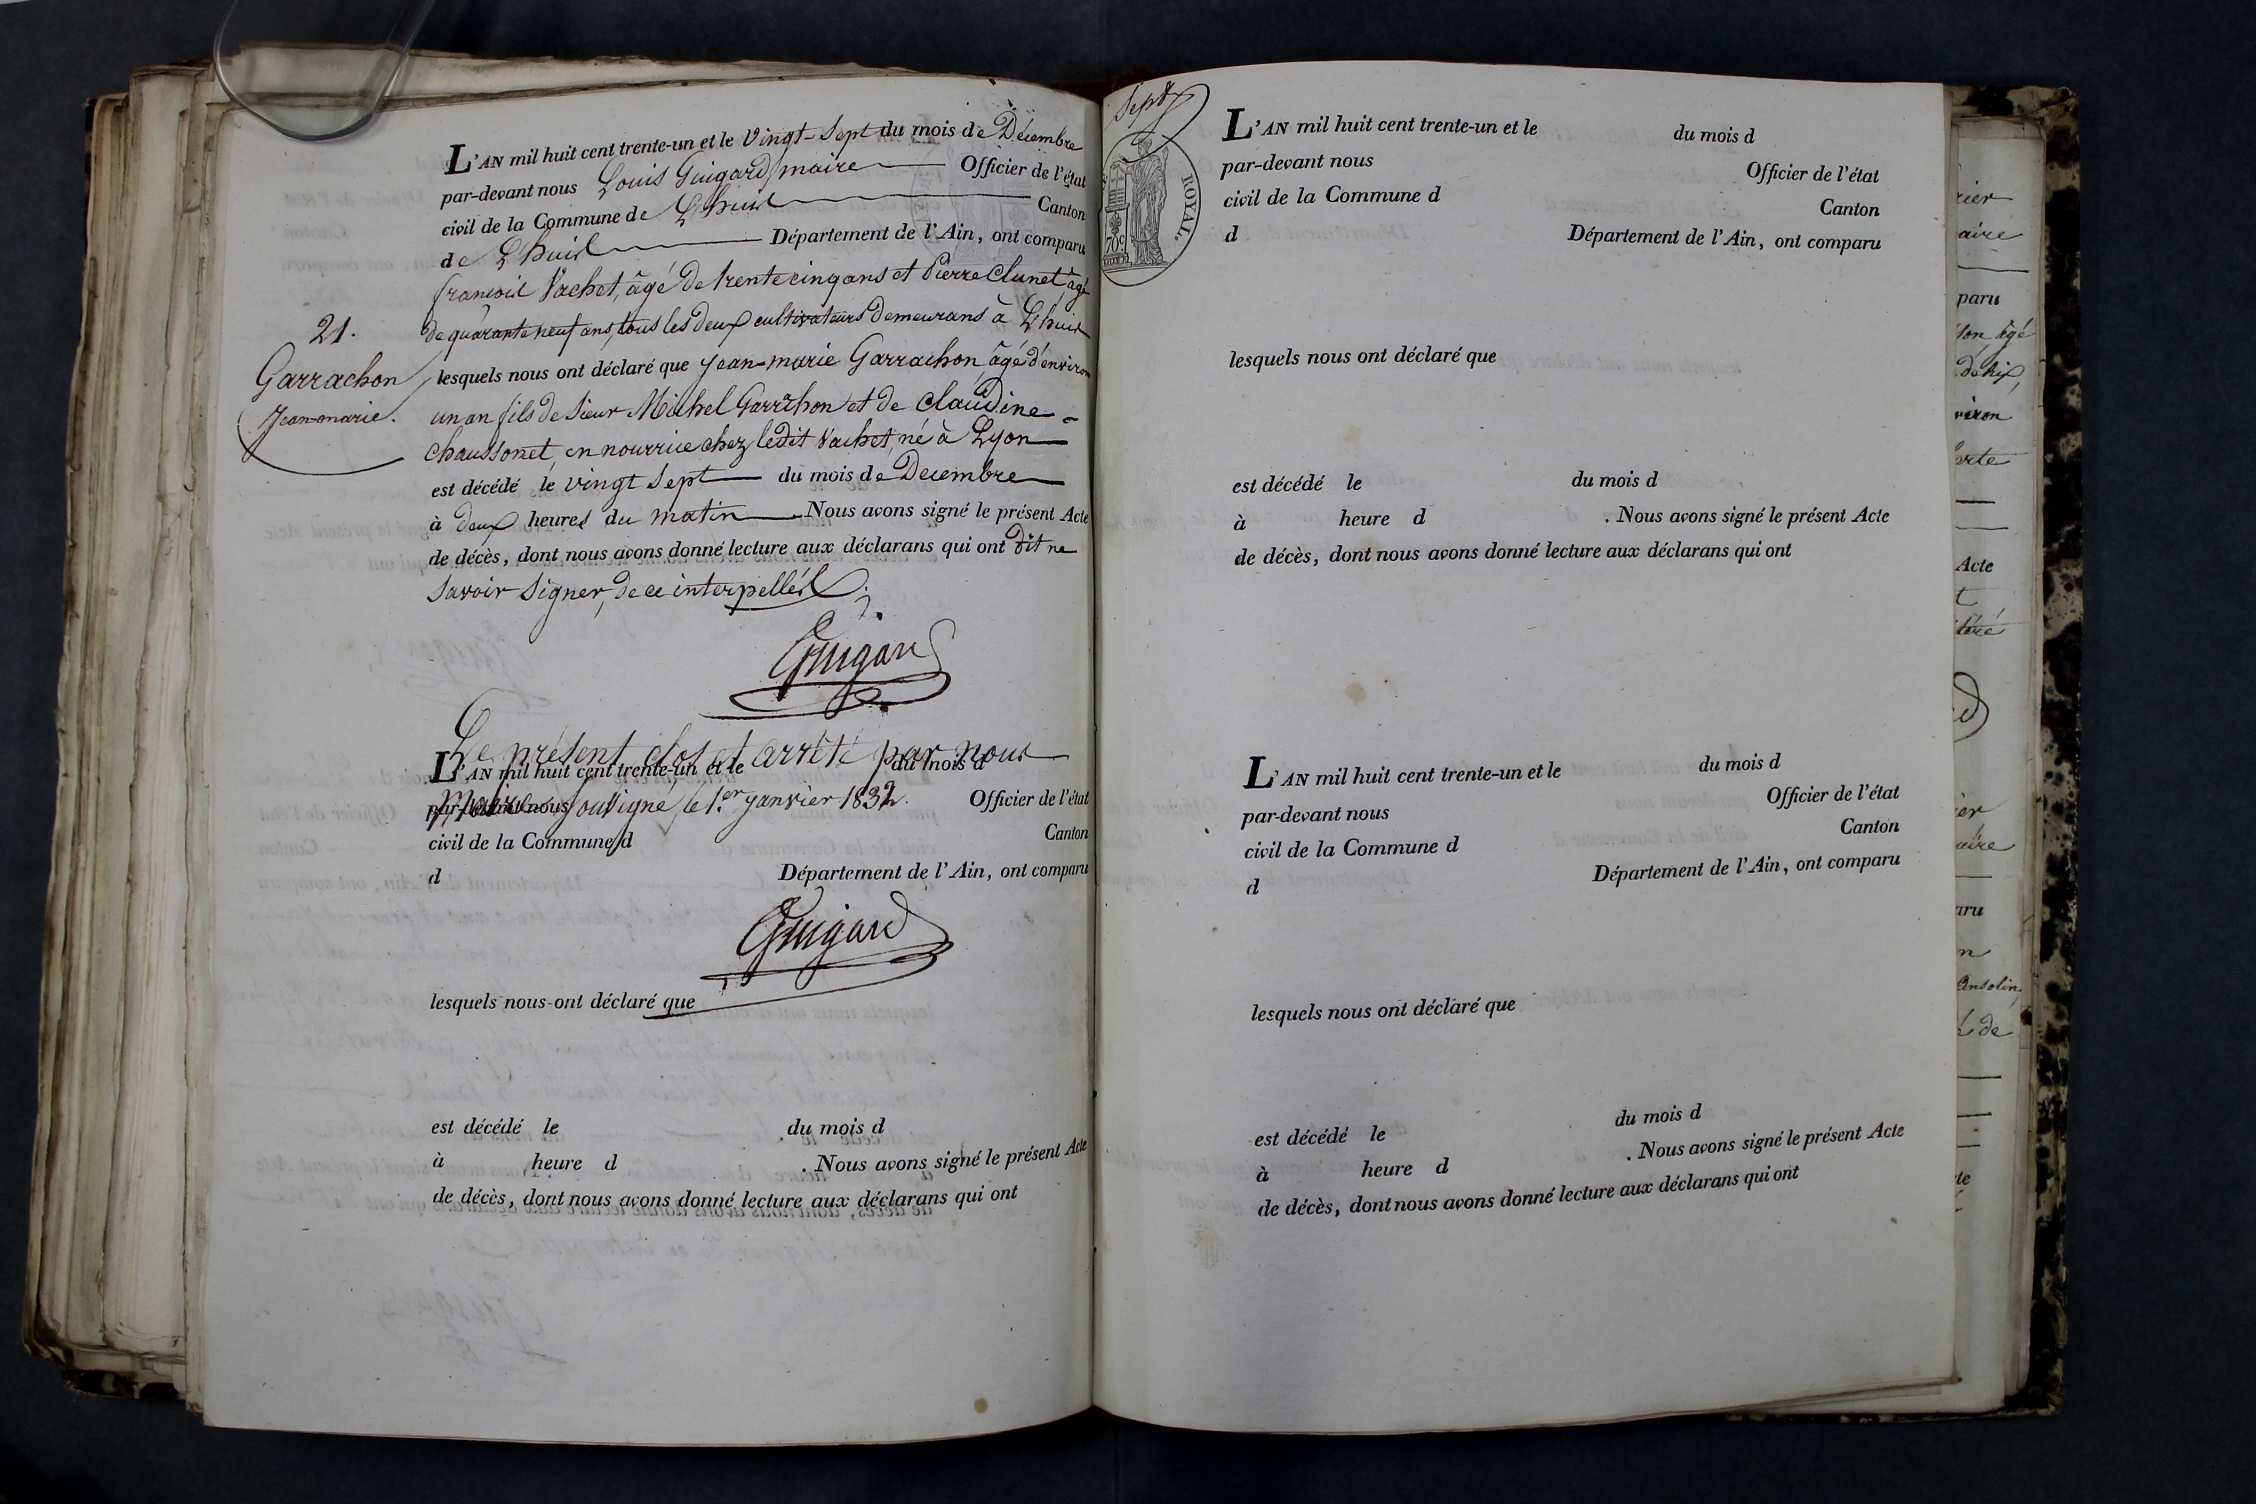 L'AN mil huit cent trente-un et le vingt-sept du mois de Décembre
par-devant nous Louis Guigard maire Officier de l'état
civil de la Commune de Lhuis Canton
de Lhuis Département de l'Ain, ont comparu
francois Vachet, âgé de trente cinq ans et Pierre Clunet âgé
de quarante neuf ans, tous les deux cultivateurs demeurans à Lhuis
21.
Garrachon
Jean-marie.
lesquels nous ont déclaré que Jean-marie Garrachon, âgé d'environ
un an fils de sieur Michel Garrchon et de Claudine
Chaussonet, en nourrice chez ledit Vachet, né à Lyon
est décédé le vingt sept du mois de Decembre
à deux heures du matin. Nous avons signé le présent Acte
de décès, dont nous avons donné lecture aux déclarans qui ont dit ne
savoir signer, de ce interpellés.
Guigard
Le présent clos et arrêté par nous
L'AN mil huit cent trente-un et le du mois d
Maire soussigné, le 1.er janvier 1832.
par-devant nous Officier de l'état
civil de la Commune d Canton
d Département de l'Ain, ont comparu
Guigard
lesquels nous ont déclaré que
est décédé le du mois d
à heure d . Nous avons signé le présent Acte
de décès, dont nous avons donné lecture aux déclarans qui ont
sept
ROYAL.
70c
L'AN mil huit cent trente-un et le du mois d
par-devant nous Officier de l'état
civil de la Commune d Canton
d Département de l'Ain, ont comparu
lesquels nous ont déclaré que
est décédé le du mois d
à heure d . Nous avons signé le présent Acte
de décès, dont nous avons donné lecture aux déclarans qui ont
L'AN mil huit cent trente-un et le du mois d
par-devant nous Officier de l'état
civil de la Commune d Canton
d Département de l'Ain, ont comparu
lesquels nous ont déclaré que
est décédé le du mois d
à heure d . Nous avons signé le présent Acte
de décès, dont nous avons donné lecture aux déclarans qui ont